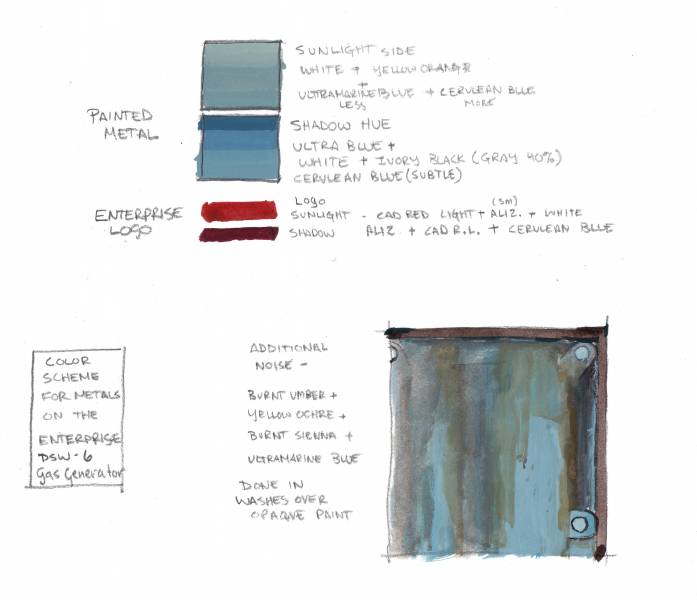 SUNLIGHT SIDE
WHITE + YELLOW ORANGE
+
ULTRAMARINE BLUE + CERULEAN BLUE
LESS MORE
PAINTED
METAL
SHADOW HUE
ULTRA BLUE +
WHITE + IVORY BLACK (GRAY 40%)
CERULEAN BLUE (SUBTLE)
ENTERPRISE
LOGO
LOGO (SM)
SUNLIGHT - CAD RED LIGHT + ALIZ. + WHITE
SHADOW ALIZ + CAD R.L. + CERULEAN BLUE
COLOR
SCHEME
FOR METALS
ON THE
ENTERPRISE
DSW-6
Gas Generator
ADDITIONAL
NOISE -
BURNT UMBER +
YELLOW OCHRE +
BURNT SIENNA +
ULTRAMARINE BLUE
DONE IN
WASHES OVER
OPAQUE PAINT